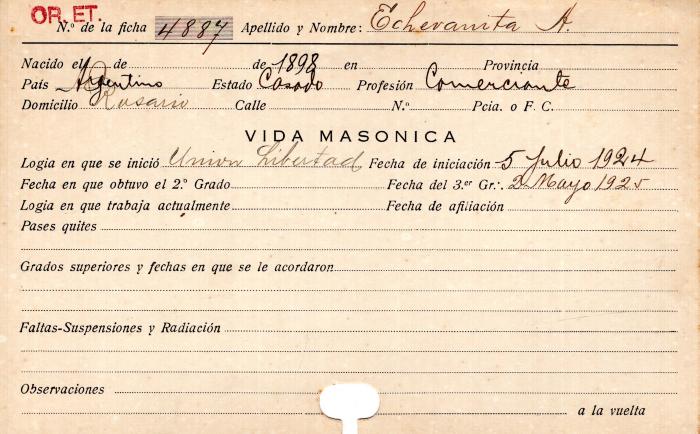 OR. ET.
N.º de la ficha 4887 Apellido y Nombre: Echevarrita A.
Nacido el de de 1898 en Provincia
País Argentino Estado Casado Profesión Comerciante
Domicilio Rosario Calle N.º Pcia. o F. C.
VIDA MASONICA
Logia en que se inició Union Libertad Fecha de iniciación 5 Julio 1924
Fecha en que obtuvo el 2.º Grado Fecha del 3.er Gr.: 2 Mayo 1925
Logia en que trabaja actualmente Fecha de afiliación
Pases quites
Grados superiores y fechas en que se le acordaron
Faltas-Suspensiones y Radiación
Observaciones
a la vuelta